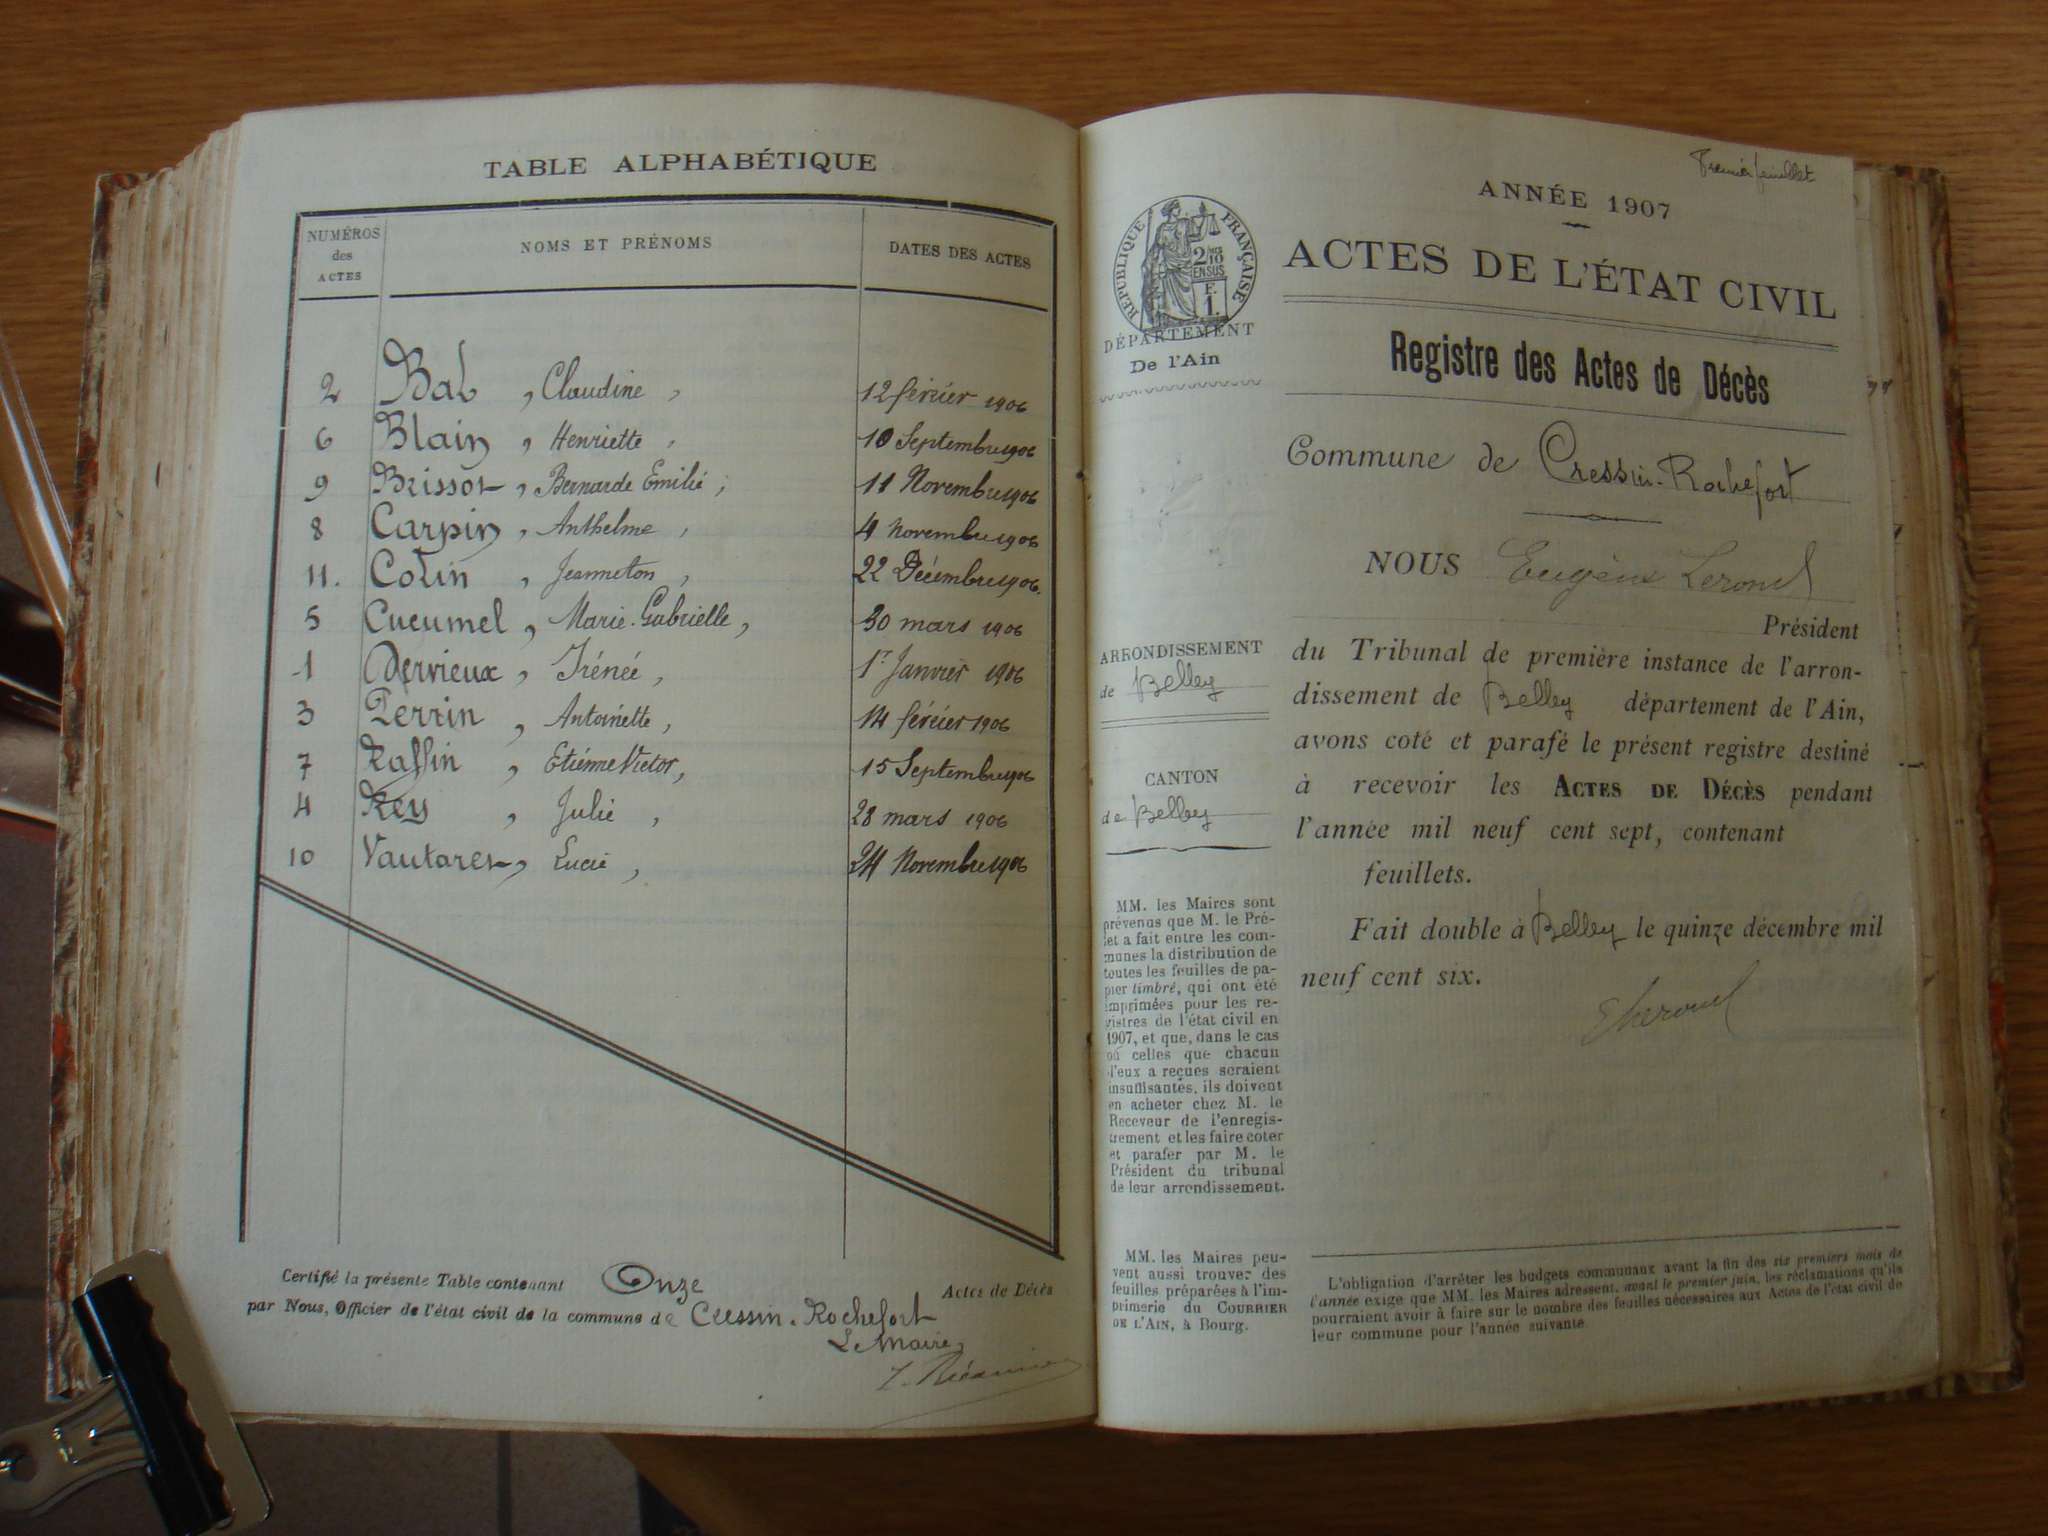 TABLE ALPHABÉTIQUE
NUMÉROS des ACTES
NOMS ET PRÉNOMS
DATES DES ACTES
2 Bal, Claudine, 12 février 1906
6 Blain, Henriette, 10 Septembre 1906
9 Brissot, Bernarde Emilie, 11 Novembre 1906
8 Carpin, Anthelme, 4 novembre 1906
11. Colin, Jeanneton, 22 Décembre 1906.
5 Cueumel, Marie-Gabrielle, 30 mars 1906
1 Dervieux, Irénée, 1r Janvier 1906
3 Perrin, Antoinette, 14 février 1906
7 Raffin, Etienne Victor, 15 Septembre 1906
4 Rey, Julie, 28 mars 1906
10 Vautaret, Lucie, 24 Novembre 1906
Certifié la présente Table contenant Onze Actes de Décès
par Nous, Officier de l'état civil de la commune de Cressin-Rochefort
Le Maire,
Premier feuillet
ANNÉE 1907
ACTES DE L'ÉTAT CIVIL
Registre des Actes de Décès
Commune de Cressin-Rochefort
NOUS Eugène
Président
du Tribunal de première instance de l'arron-
dissement de Belley département de l'Ain,
avons coté et parafé le présent registre destiné
à recevoir les ACTES DE DÉCÈS pendant
l'année mil neuf cent sept, contenant
feuillets.
Fait double à Belley le quinze décembre mil
neuf cent six.
RÉPUBLIQUE FRANÇAISE
2/10
EN SUS
F.
1.
DÉPARTEMENT
De l'Ain
ARRONDISSEMENT
de Belley
CANTON
de Belley
MM. les Maires sont
prévenus que M. le Pré-
fet a fait entre les com-
munes la distribution de
toutes les feuilles de pa-
pier timbré, qui ont été
imprimées pour les re-
gistres de l'état civil en
1907, et que, dans le cas
où celles que chacun
d'eux a reçues seraient
insuffisantes, ils doivent
en acheter chez M. le
Receveur de l'enregis-
trement et les faire coter
et parafer par M. le
Président du tribunal
de leur arrondissement.
MM. les Maires peu-
vent aussi trouver des
feuilles préparées à l'im-
primerie du COURRIER
DE L'AIN, à Bourg.
L'obligation d'arrêter les budgets communaux avant la fin des six premiers mois de
l'année exige que MM. les Maires adressent, avant le premier juin, les réclamations qu'ils
pourraient avoir à faire sur le nombre des feuilles nécessaires aux Actes de l'état civil de
leur commune pour l'année suivante.